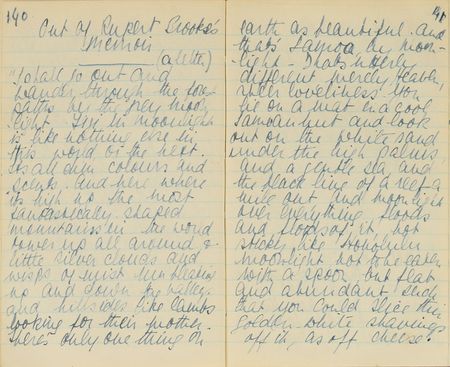 140
Out of Rupert Brooke's
Memoir
(a letter)
"I shall go out and
wander through the forest
paths by the grey moon-
light. Fiji in moonlight
is like nothing else in
this world or the next.
Its all dim colours and
scents. And here where
its high up the most
fantastically shaped
mountains in the world
tower up all around &
little silver clouds and
wisps of mist run bleating
up and down the valleys
and hillsides like lambs
looking for their mother.
There's only one thing on
141
earth as beautiful. And
that's Samoa by moon-
light - That's utterly
different merely Heaven,
sheer loveliness. You
lie on a mat in a cool
Samoan hut and look
out on the white sand
under the high palms,
and a gentle sea, and
the black line of a reef a
mile out and moonlight
over everything, floods
and floods of it, not
sticky like Honolulu
moonlight not to be eaten
with a spoon but flat
and abundant such
that you could slice thin
golden-white shavings
off it, as off cheese.